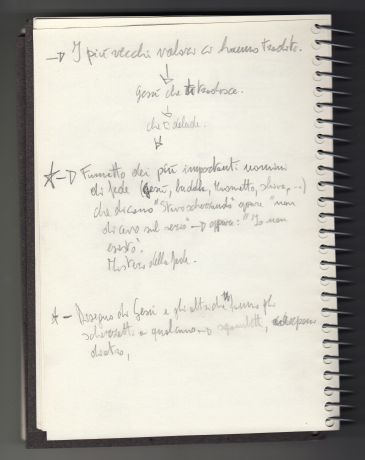 → I più vecchi valori ci hanno tradito.
Gesù che tradisce.
che delude.
→ Fumetto dei più importanti uomini
di fede (Gesù, buddha, Maometto, shiva, ...)
che dicono "Stavo scherzando" oppure "non
dicevo sul serio" → oppure: "Io non
esisto".
Mistero della fede.
- Disegno di Gesù e gli altri che fanno gli
scherzetti a qualcuno, sgambetti,
dietro,